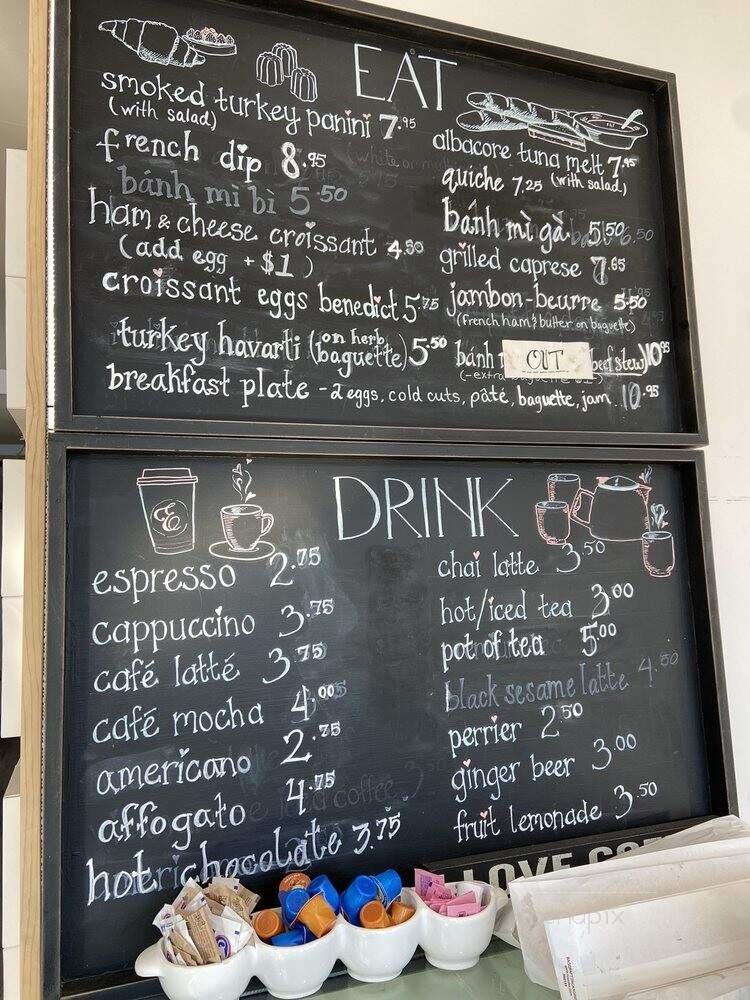 EAT
smoked turkey panini 7.95
(with salad)
french dip 8.95
bánh mì bì 5.50
ham & cheese croissant 4.50
(add egg + $1)
croissant eggs benedict 5.75
turkey havarti (on herb baguette) 5.50
breakfast plate - 2 eggs, cold cuts, pâté, baguette, jam 10.95
albacore tuna melt 7.95
quiche 7.25 (with salad)
bánh mì gà 5.50
grilled caprese 7.65
jambon-beurre 5.50
(french ham & butter on baguette)
bánh OUT beef stew) 10.95
(-extra
DRINK
E
espresso 2.75
cappuccino 3.75
café latté 3.75
café mocha 4.00
americano 2.75
affogato 4.75
hot chocolate 3.75
chai latte 3.50
hot/iced tea 3.00
pot of tea 5.00
black sesame latte 4.50
perrier 2.50
ginger beer 3.00
fruit lemonade 3.50
LOVE